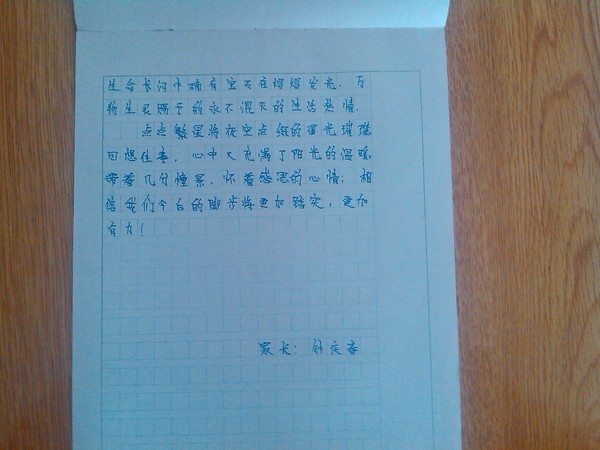 生命长河中确有宝石在熠熠发光，万
物生灵赐予的永不混灭的生活热情.
点点繁星将夜空点缀的星光璀璨
回想往事，心中又充满了阳光的温暖.
带着几分憧憬，怀着感恩的心情；相
信我们今日的脚步将更加踏实，更加
有力！
家长：